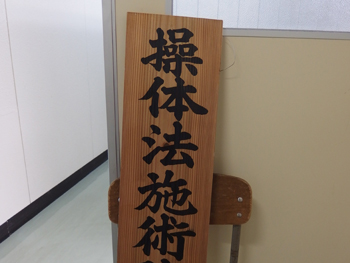 操体法施術